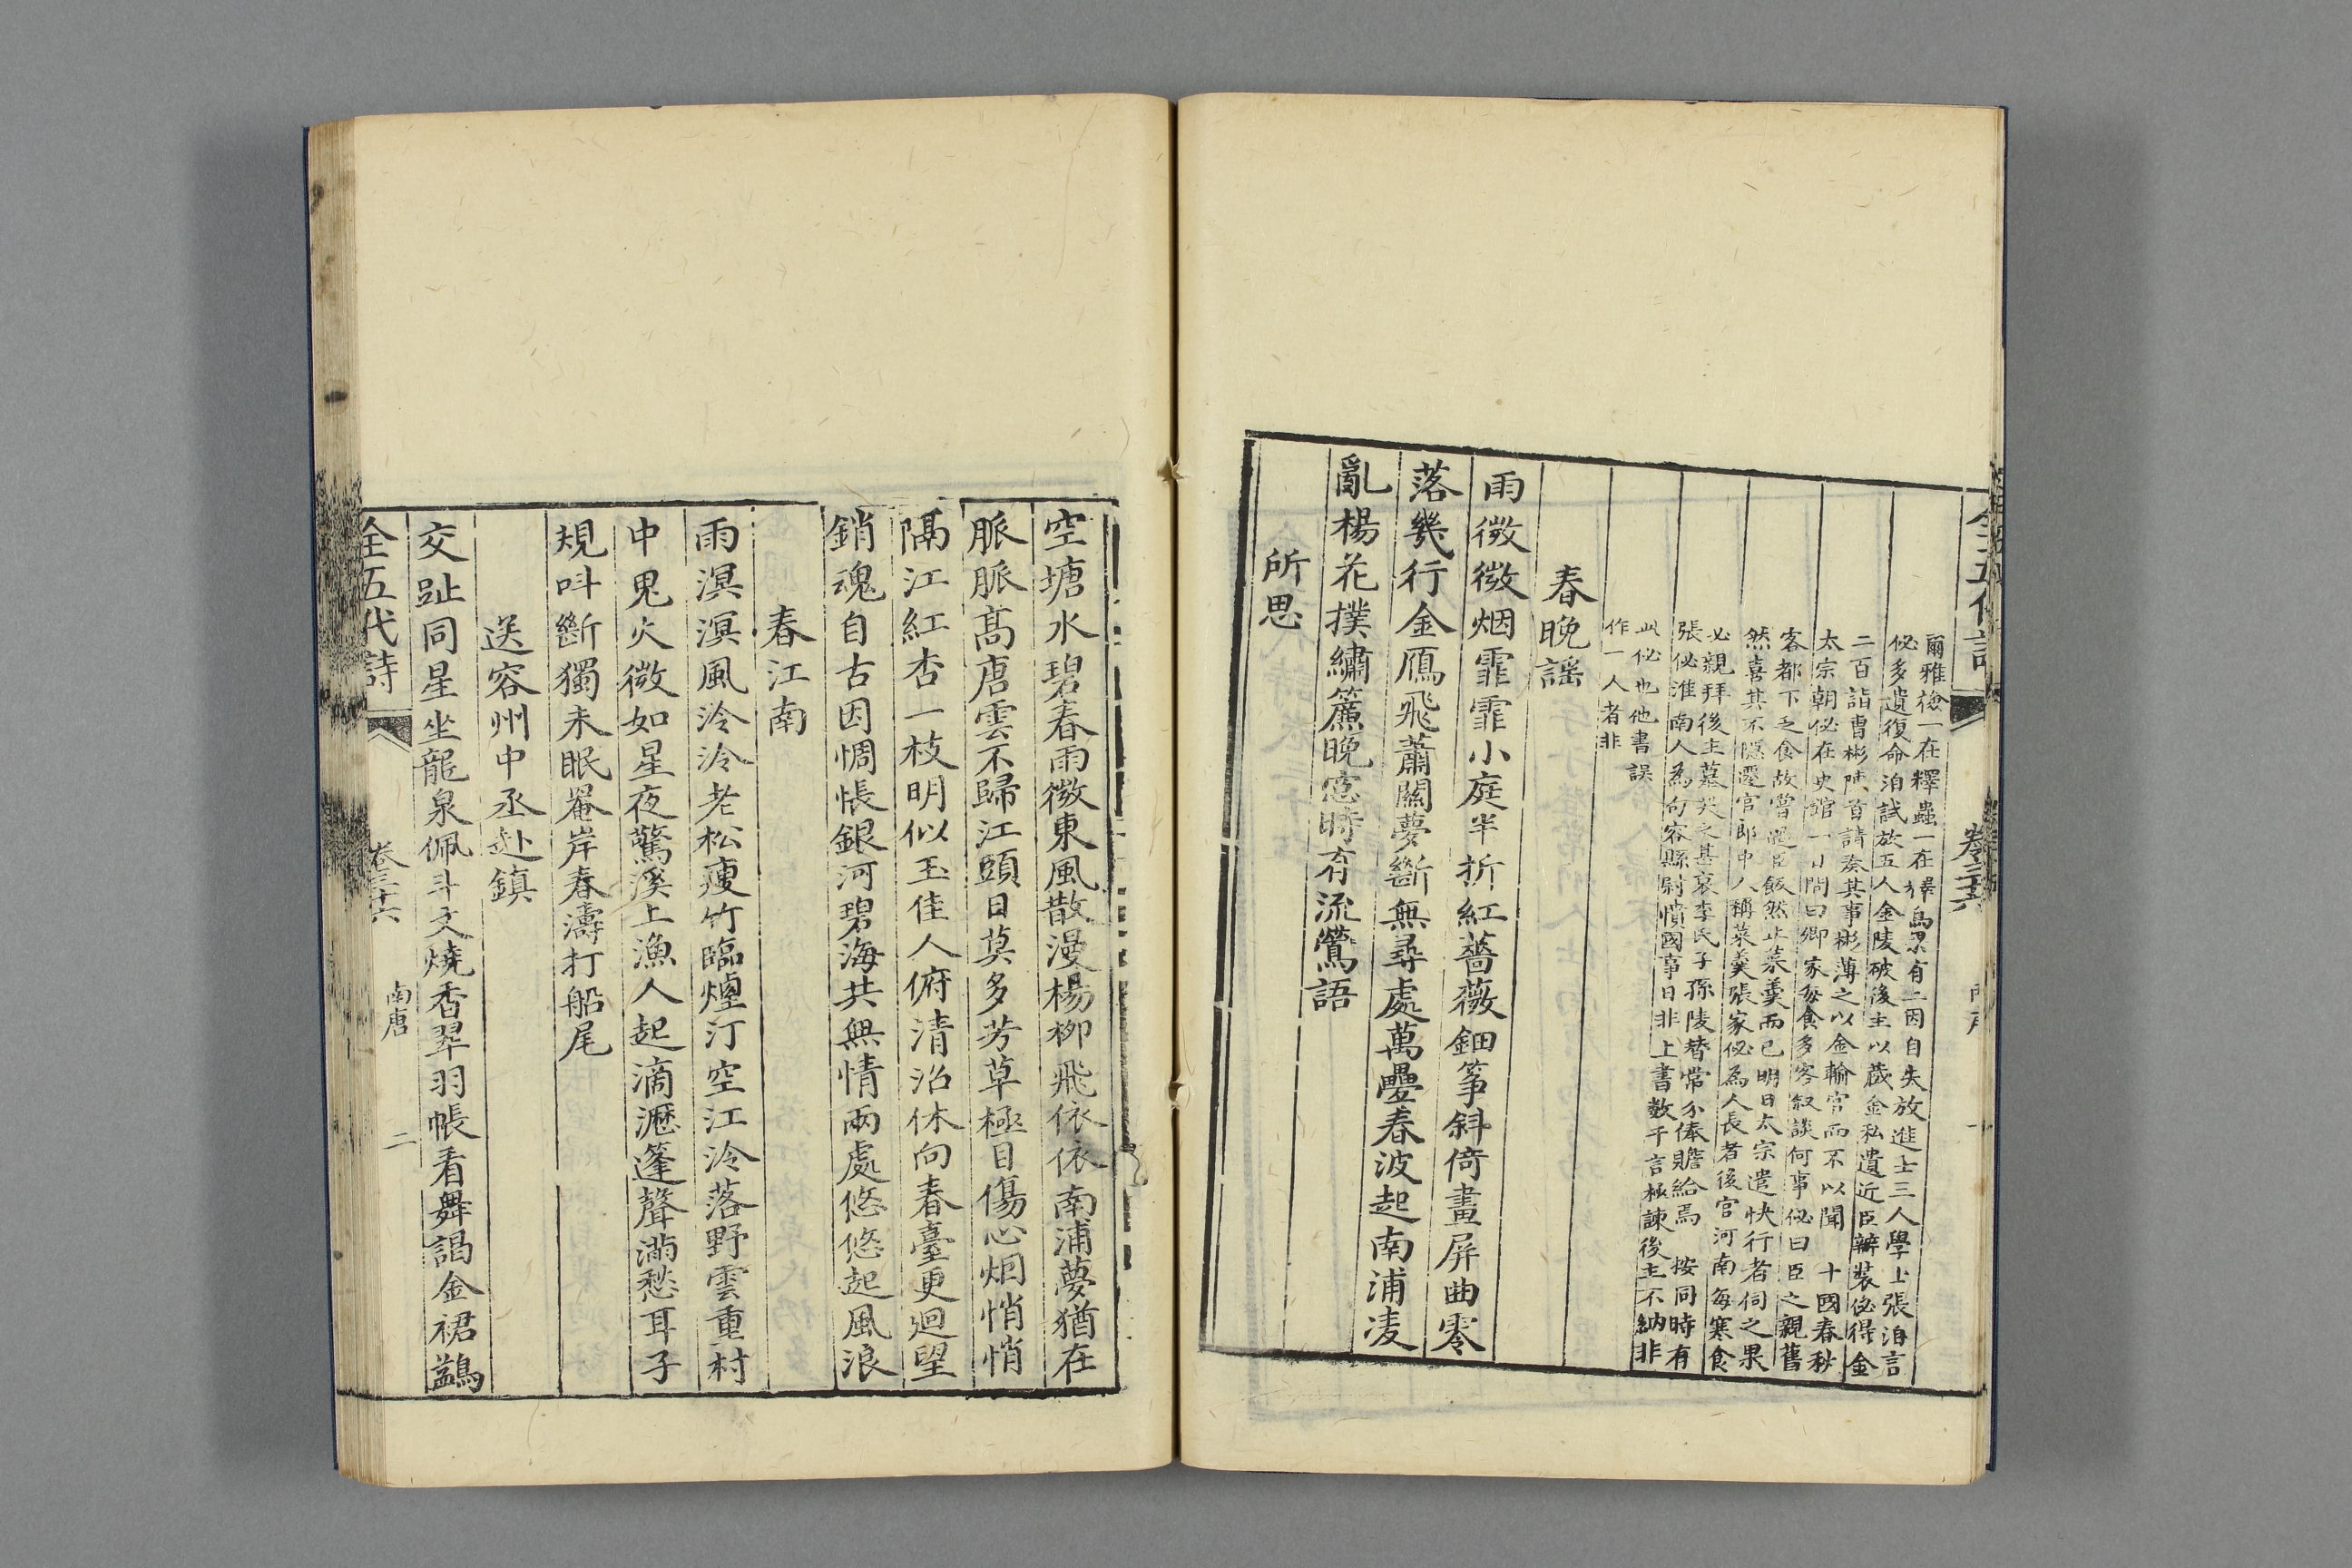 爾雅後一在釋蟲一在釋鳥果有二因自失放進士三人學士張洎言
佖多遺復命洎試放五人金陵破後主以藏金私遺近臣辦裝佖得金
二百詣曹彬陳首請奏其事彬薄之以金輸官而不以聞 十國春秋
太宗朝佖在史館一日問曰卿家每食多客叙談何事佖曰臣之親舊
客都下乏食故嘗過臣飯然止菜羹而已明日太宗遣快行者伺之果
然喜其不隱遷官郎中人稱菜羹張家佖為人長者後官河南每寒食
必親拜後主墓哭之甚哀李氏子孫陵替常分俸贍給焉 按同時有
張佖淮南人為句容縣尉憤國事日非上書数千言極諫後主不納非
此佖也他書誤
作一人者非
春晚謡
雨微微烟霏霏小庭半折紅薔薇鈿筝斜倚畫屏曲零
落幾行金鴈飛蕭關夢斷無尋處萬疊春波起南浦凌
亂楊花撲繡簾晚窓時有流鶯語
所思
空塘水碧春雨微東風散漫楊栁飛依依南浦夢猶在
脈脈髙唐雲不歸江頭日莫多芳草極目傷心烟悄悄
隔江紅杏一枝明似玉佳人俯清沼休向春臺更迴望
銷魂自古因惆悵銀河碧海共無情兩處悠悠起風浪
春江南
雨溟溟風泠泠老松瘦竹臨煙汀空江冷落野雲重村
中鬼火微如星夜驚溪上漁人起滴瀝篷聲滿愁耳子
規呌斷獨未眠罨岸春濤打船尾
送容州中丞赴鎮
交趾同星坐龍泉佩斗文燒香翠羽帳看舞謁金裙鷁
全五代詩 卷三十六 南唐 二